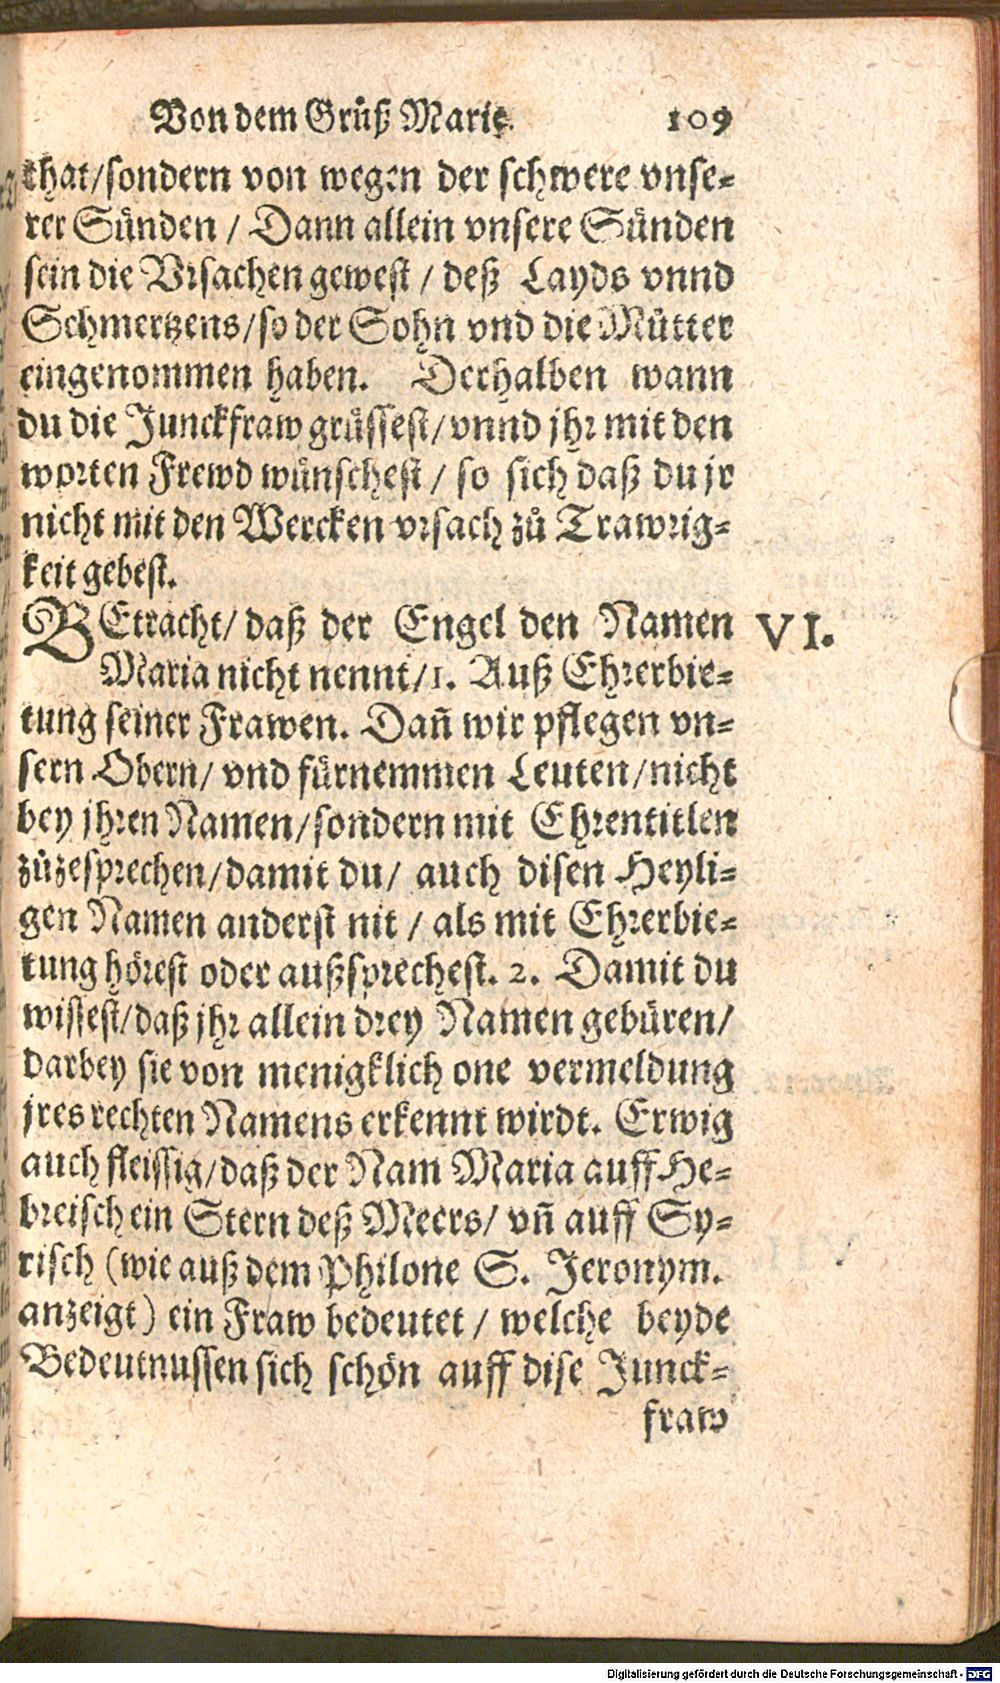 Von dem Grůß Marię. 109
that/sondern von wegen der schwere vnse-
rer Sünden / Dann allein vnsere Sünden
sein die Vrsachen gewest / deß Layds vnnd
Schmertzens/so der Sohn vnd die Můtter
eingenommen haben. Derhalben wann
du die Junckfraw grüssest/vnnd jhr mit den
worten Frewd wünschest / so sich daß du jr
nicht mit den Wercken vrsach zů Trawrig-
keit gebest.
BEtracht/ daß der Engel den Namen VI.
Maria nicht nennt/1. Auß Ehrerbie-
tung seiner Frawen. Dañ wir pflegen vn-
sern Obern/ vnd fürnemmen Leuten/nicht
bey jhren Namen/sondern mit Ehrentitlen
zůzesprechen/damit du/ auch disen Heyli-
gen Namen anderst nit / als mit Ehrerbie-
tung hörest oder außsprechest. 2. Damit du
wissest/daß jhr allein drey Namen gebüren/
darbey sie von menigklich one vermeldung
jres rechten Namens erkennt wirdt. Erwig
auch fleissig/daß der Nam Maria auff He-
breisch ein Stern deß Meers/ vñ auff Sy-
risch (wie auß dem Philone S. Jeronym.
anzeigt) ein Fraw bedeutet / welche beyde
Bedeutnussen sich schön auff dise Junck-
fraw
Digitalisierung gefördert durch die Deutsche Forschungsgemeinschaft - DFG